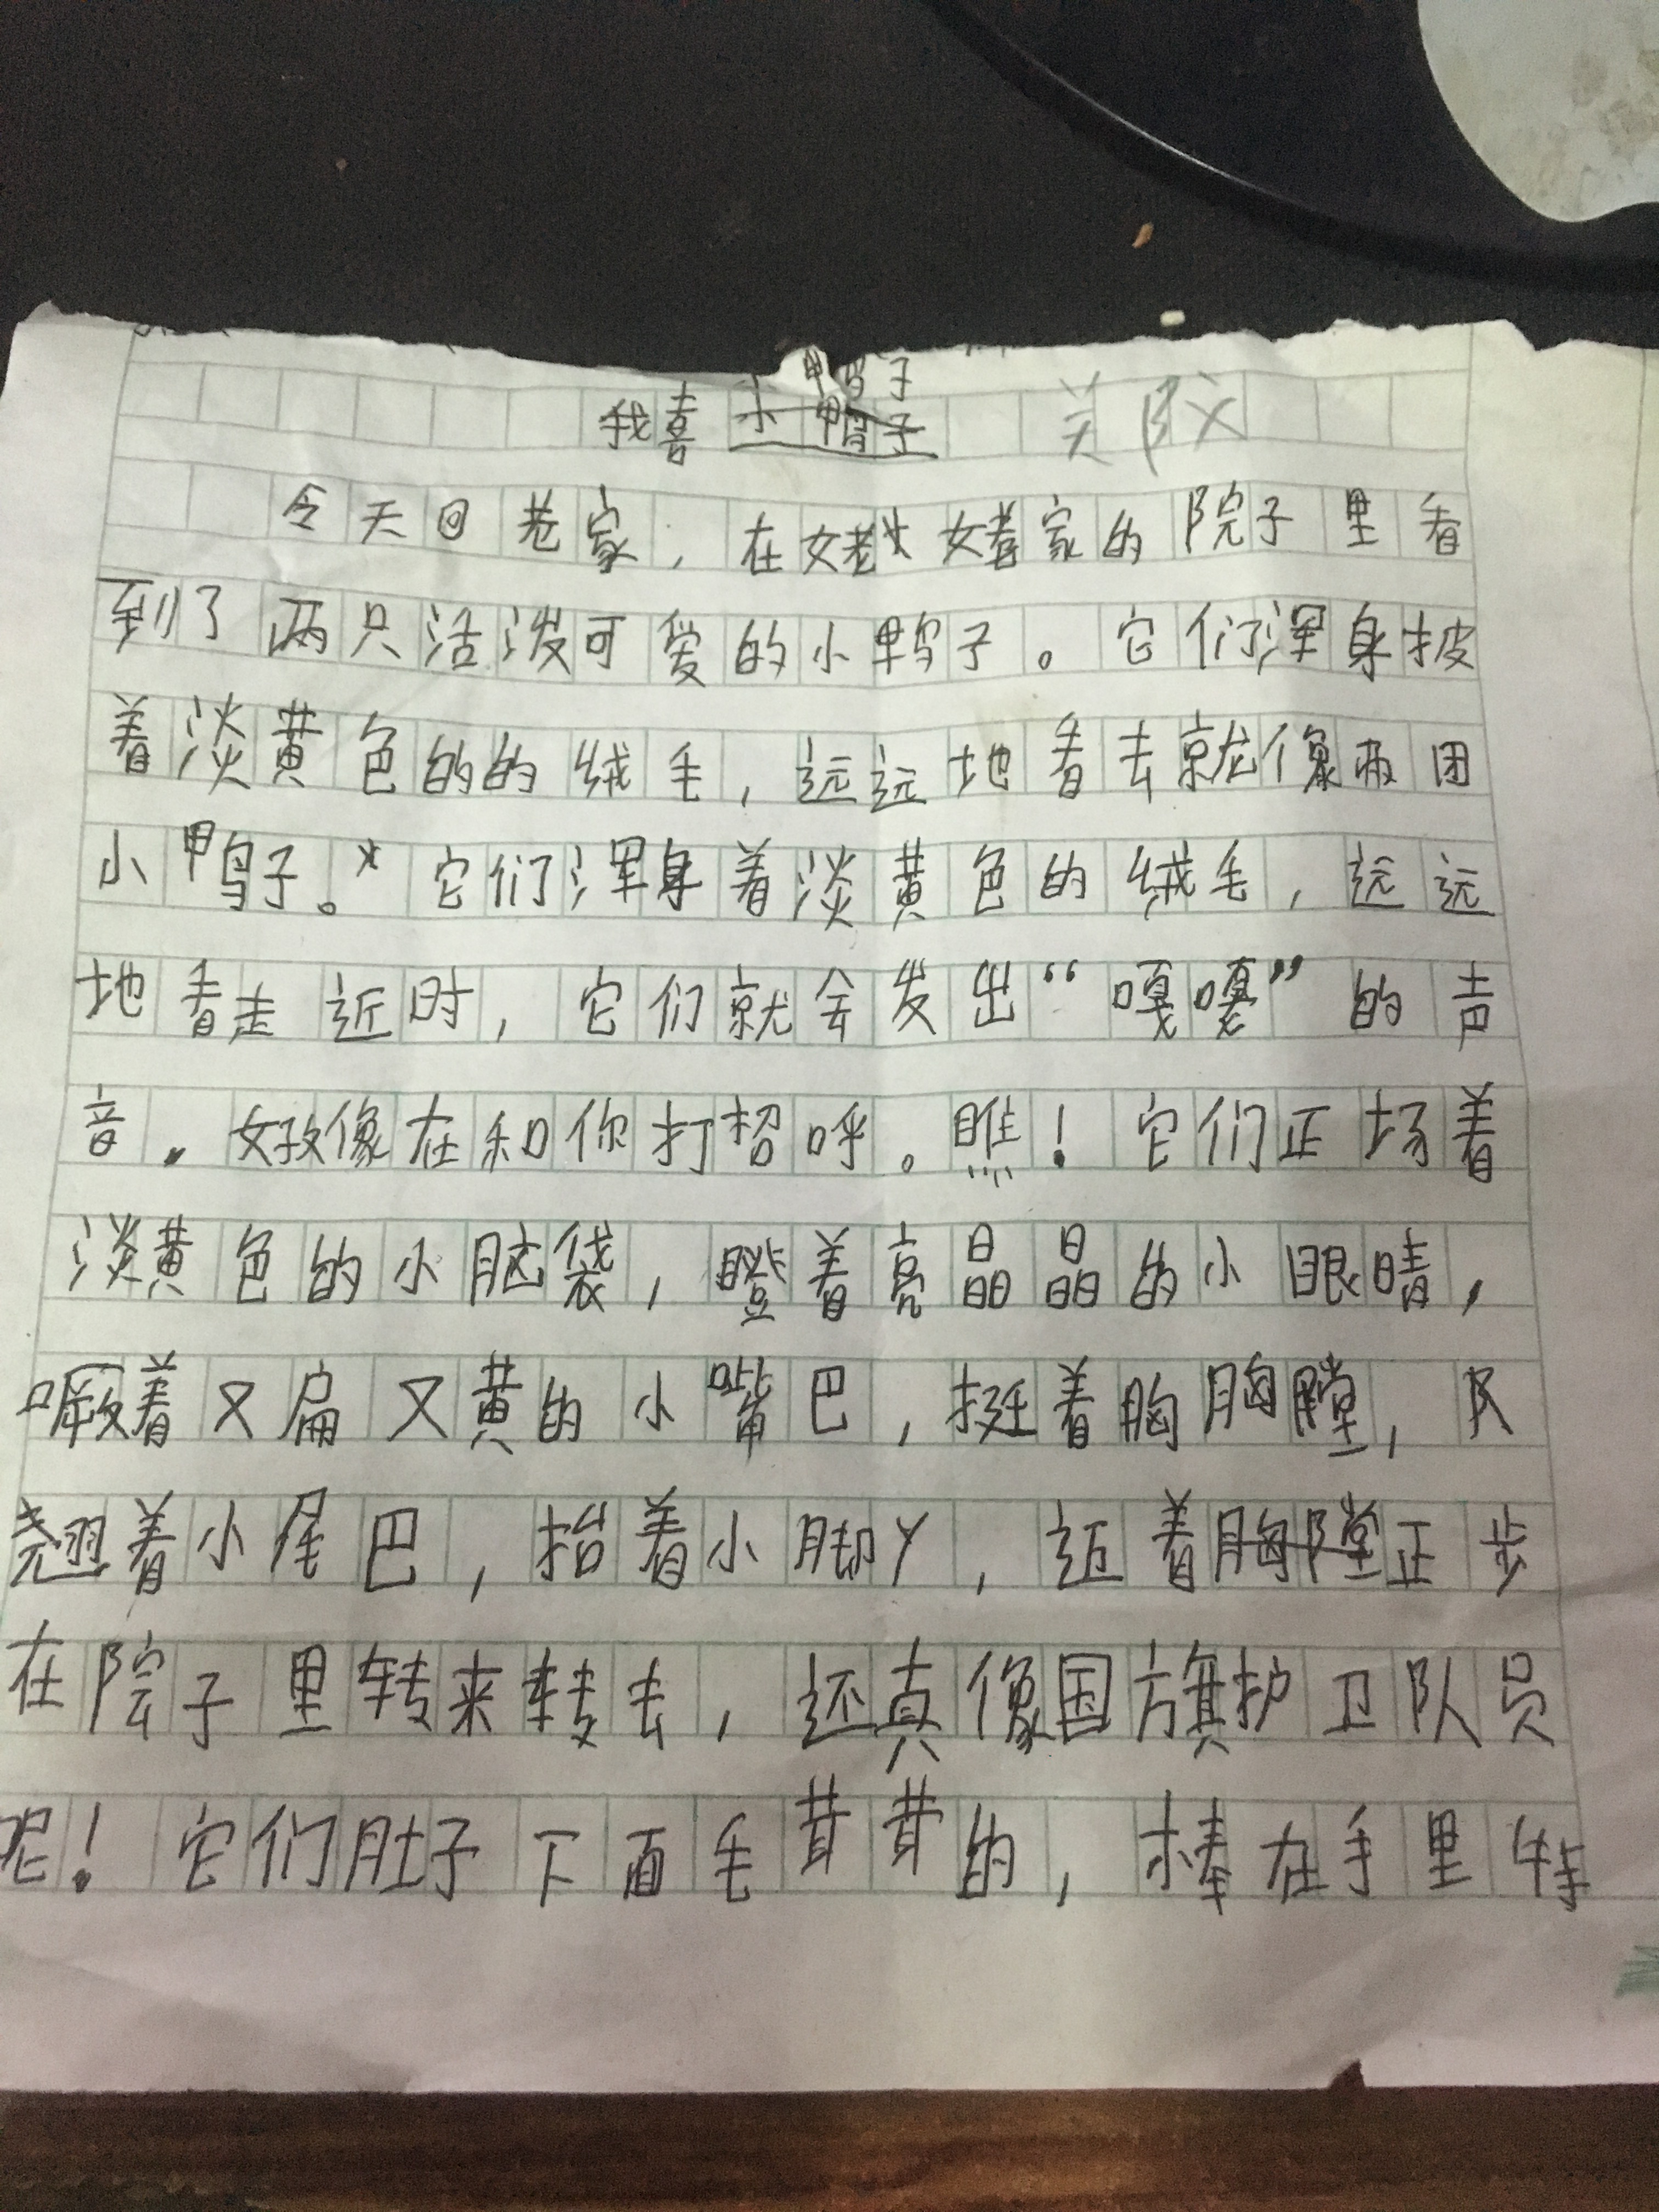 鸭子
我喜 小鸭子
今天回老家，在姥姥家的院子里看
到了两只活泼可爱的小鸭子。它们浑身披
着淡黄色的的绒毛，远远地看去就像两团
小鸭子。它们浑身着淡黄色的绒毛，远远
地看走近时，它们就会发出“嘎嘎”的声
音。好像在和你打招呼。瞧！它们正扬着
淡黄色的小脑袋，瞪着亮晶晶的小眼睛，
噘着又扁又黄的小嘴巴，挺着胸胸膛，
翘着小尾巴，抬着小脚丫，迈着胸膛正步
在院子里转来转去，还真像国旗护卫队员
呢！它们肚子下面毛茸茸的，棒在手里特